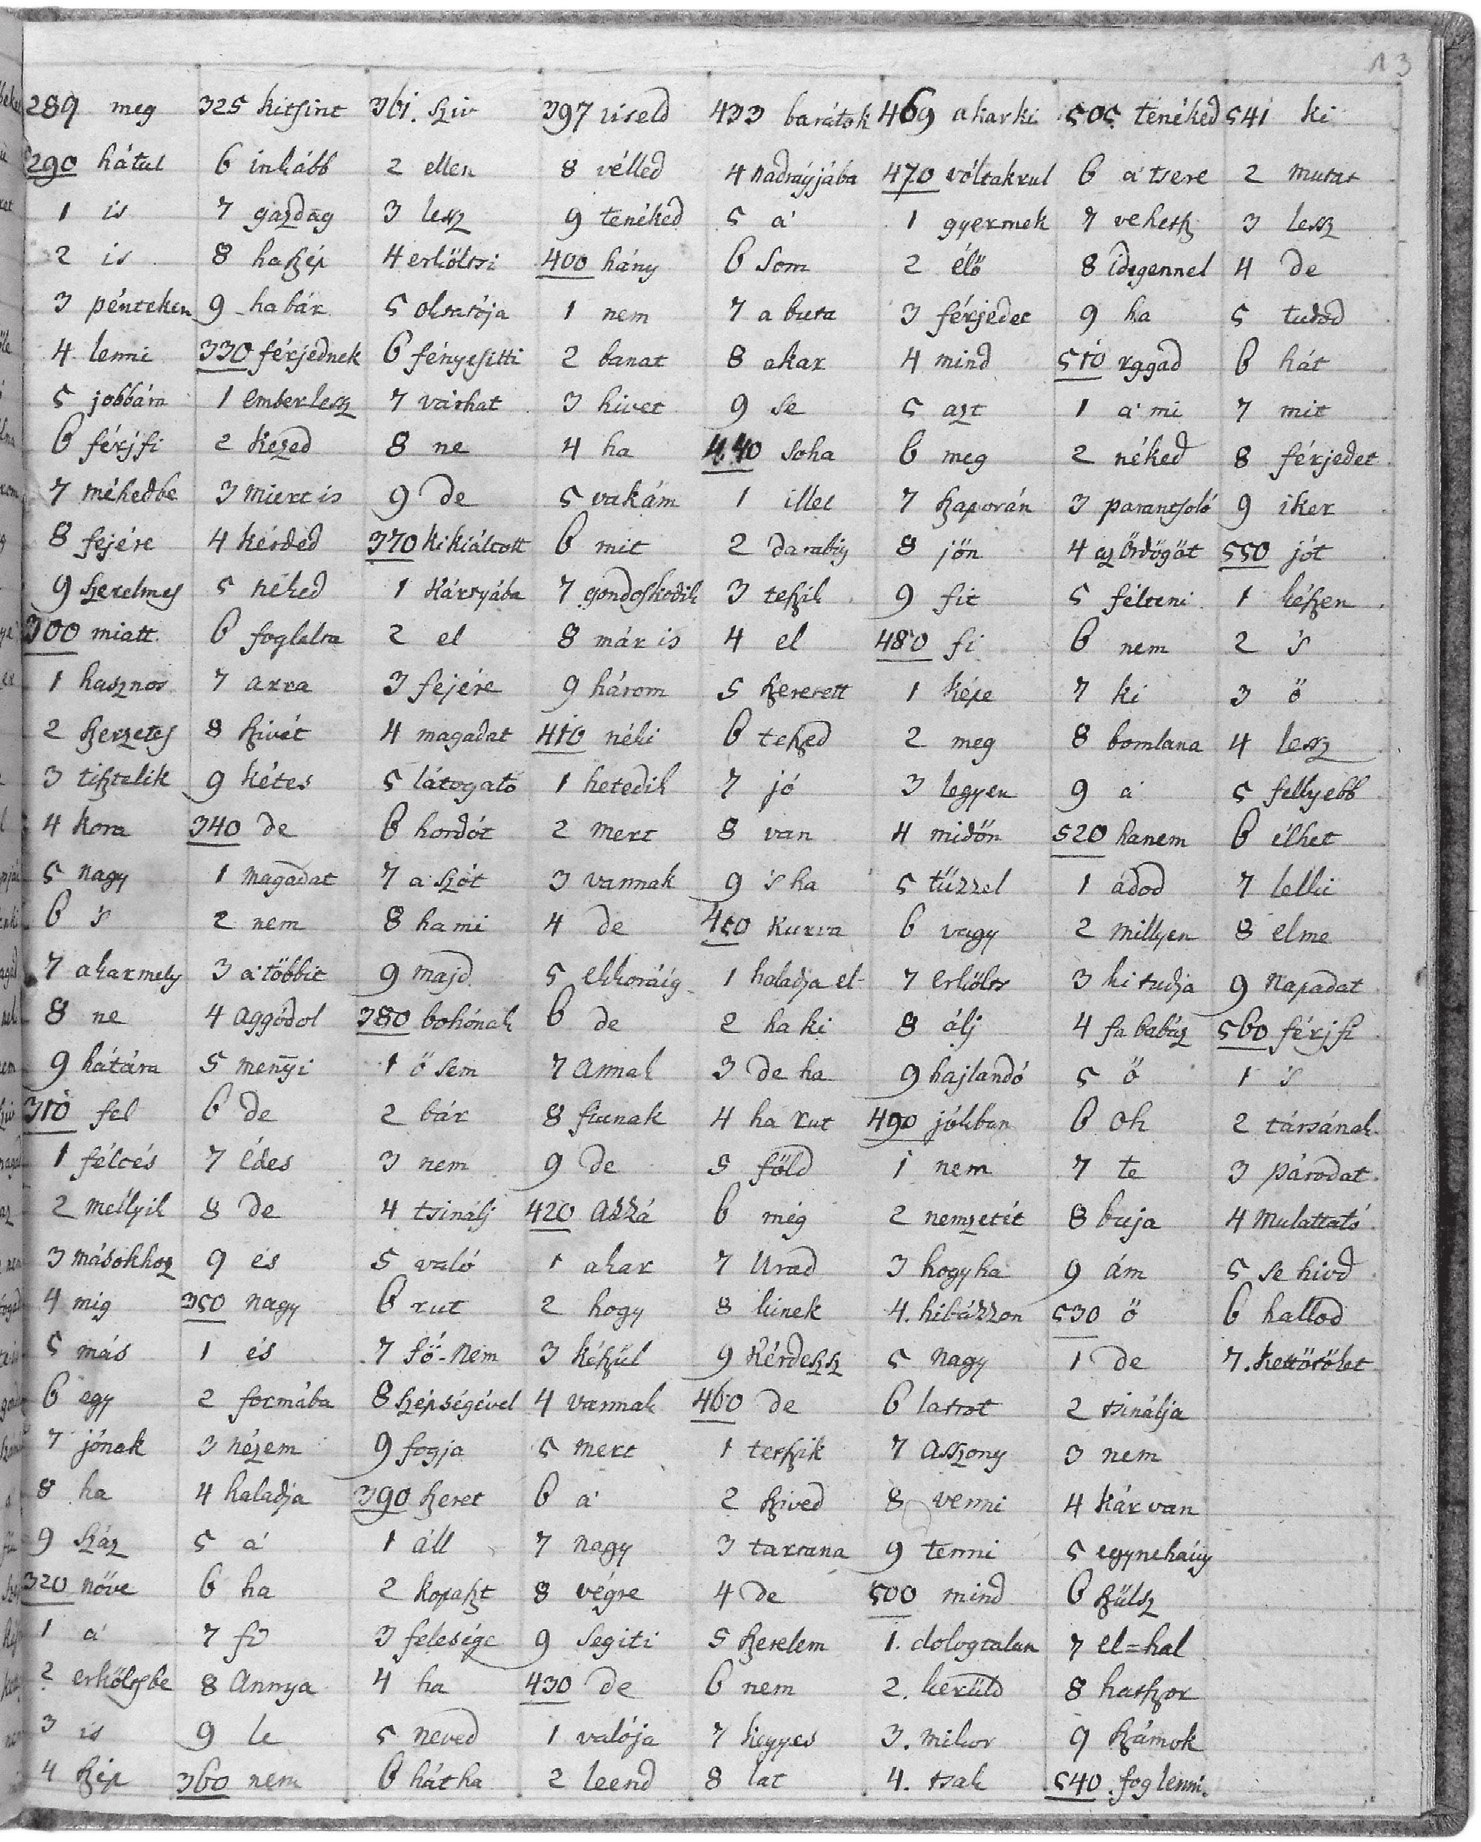 13
289 meg
290 hátul
1 is
2 is
3 pénteken
4 lenni
5 jobbára
6 férjfi
7 méhedbe
8 fejére
9 szerelmes
300 miatt
1 hasznos
2 szerzetes
3 tisztelik
4 kora
5 nagy
6 's
7 akarmely
8 ne
9 hátára
310 fel
1 féltés
2 mellyik
3 másokhoz
4 mig
5 más
6 egy
7 jónak
8 ha
9 száz
320 nőve
1 a'
2 erkőltsbe
3 is
4 szép
325 kitsint
6 inkább
7 gazdag
8 ha szép
9 ha bár
330 férjednek
1 ember lesz
2 kezed
3 miert is
4 kérded
5 néked
6 foglalta
7 arra
8 szivét
9 kétes
340 de
1 magadat
2 nem
3 a' többit
4 aggódol
5 menyi
6 de
7 édes
8 de
9 és
350 nagy
1 és
2 formába
3 nézem
4 haladja
5 a'
6 ha
7 fő
8 Annya
9 le
360 nem
361. sziv
2 ellen
3 lesz
4 erkőltsi
5 oktatója
6 fényesitti
7 várhat
8 ne
9 de
370 ki kiáltott
1 kártyába
2 el
3 fejére
4 magadat
5 látogató
6 hordót
7 a szót
8 ha mi
9 majd
380 bohónak
1 ő sem
2 bár
3 nem
4 tsinálj
5 való
6 rut
7 fő-nem
8 szépségével
9 fogja
390 szeret
1 áll
2 kopaszt
3 felesége
4 ha
5 neved
6 hát ha
397 viseld
8 vélled
9 tenéked
400 hány
1 nem
2 banat
3 hivet
4 ha
5 vakám
6 mit
7 gondoskodik
8 már is
9 három
410 néki
1 hetedik
2 mert
3 vannak
4 de
5 ekkoráig
6 de
7 annak
8 fiunak
9 de
420 azzá
1 akar
2 hogy
3 készül
4 vannak
5 mert
6 a'
7 nagy
8 végre
9 segiti
430 de
1 valója
2 leend
433 barátok
4 nadrágjába
5 a'
6 som
7 a buta
8 akar
9 se
440 soha
1 illet
2 darabig
3 teszik
4 el
5 szeretett
6 teszed
7 jó
8 van
9 's ha
450 kurva
1 haladja el
2 ha ki
3 de ha
4 ha rut
5 föld
6 még
7 Urad
8 kinek
9 kérdessz
460 de
1 tetszik
2 szived
3 tartana
4 de
5 szerelem
6 nem
7 kegyes
8 lat
469 akarki
470 vóltakrul
1 gyermek
2 élő
3 férjedet
4 mind
5 azt
6 meg
7 szaporán
8 jőn
9 fit
480 fi
1 képe
2 meg
3 legyen
4 midőn
5 tűzzel
6 vagy
7 erkőlts
8 álj
9 hajlandó
490 jókban
1 nem
2 nemzetét
3 hogy ha
4. hibázzon
5 nagy
6 latrot
7 asszony
8 venni
9 tenni
500 mind
1. dologtalan
2. kerüld
3. mikor
4. tsak
505 tenéked
6 a' tsere
7 vehetsz
8 idegennel
9 ha
510 raggad
1 a' mi
2 néked
3 parantsoló
4 az ördögöt
5 félteni
6 nem
7 ki
8 bomlana
9 a'
520 hanem
1 adod
2 millyen
3 ki tudja
4 fa babáz
5 ő
6 oh
7 te
8 buja
9 ám
530 ő
1 de
2 tsinálja
3 nem
4 kár van
5 egynehány
6 szülsz
7 el=hal
8 hatszor
9 számok
540 fog lenni.
541 ki
2 mutat
3 lessz
4 de
5 tudod
6 hát
7 mit
8 férjedet
9 iker
550 jót
1 készen
2 's
3 ő
4 lessz
5 fellyebb
6 élhet
7 lelki
8 elme
9 napadat
560 férjfi
1 's
2 társának
3 párodat
4 mulattató
5 se hivd
6 hallod
7. kettőtöket